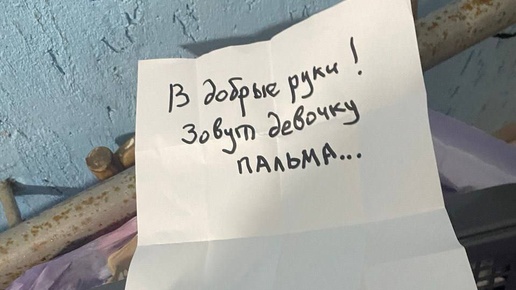 В добрые руки!
Зовут девочку
ПАЛЬМА...